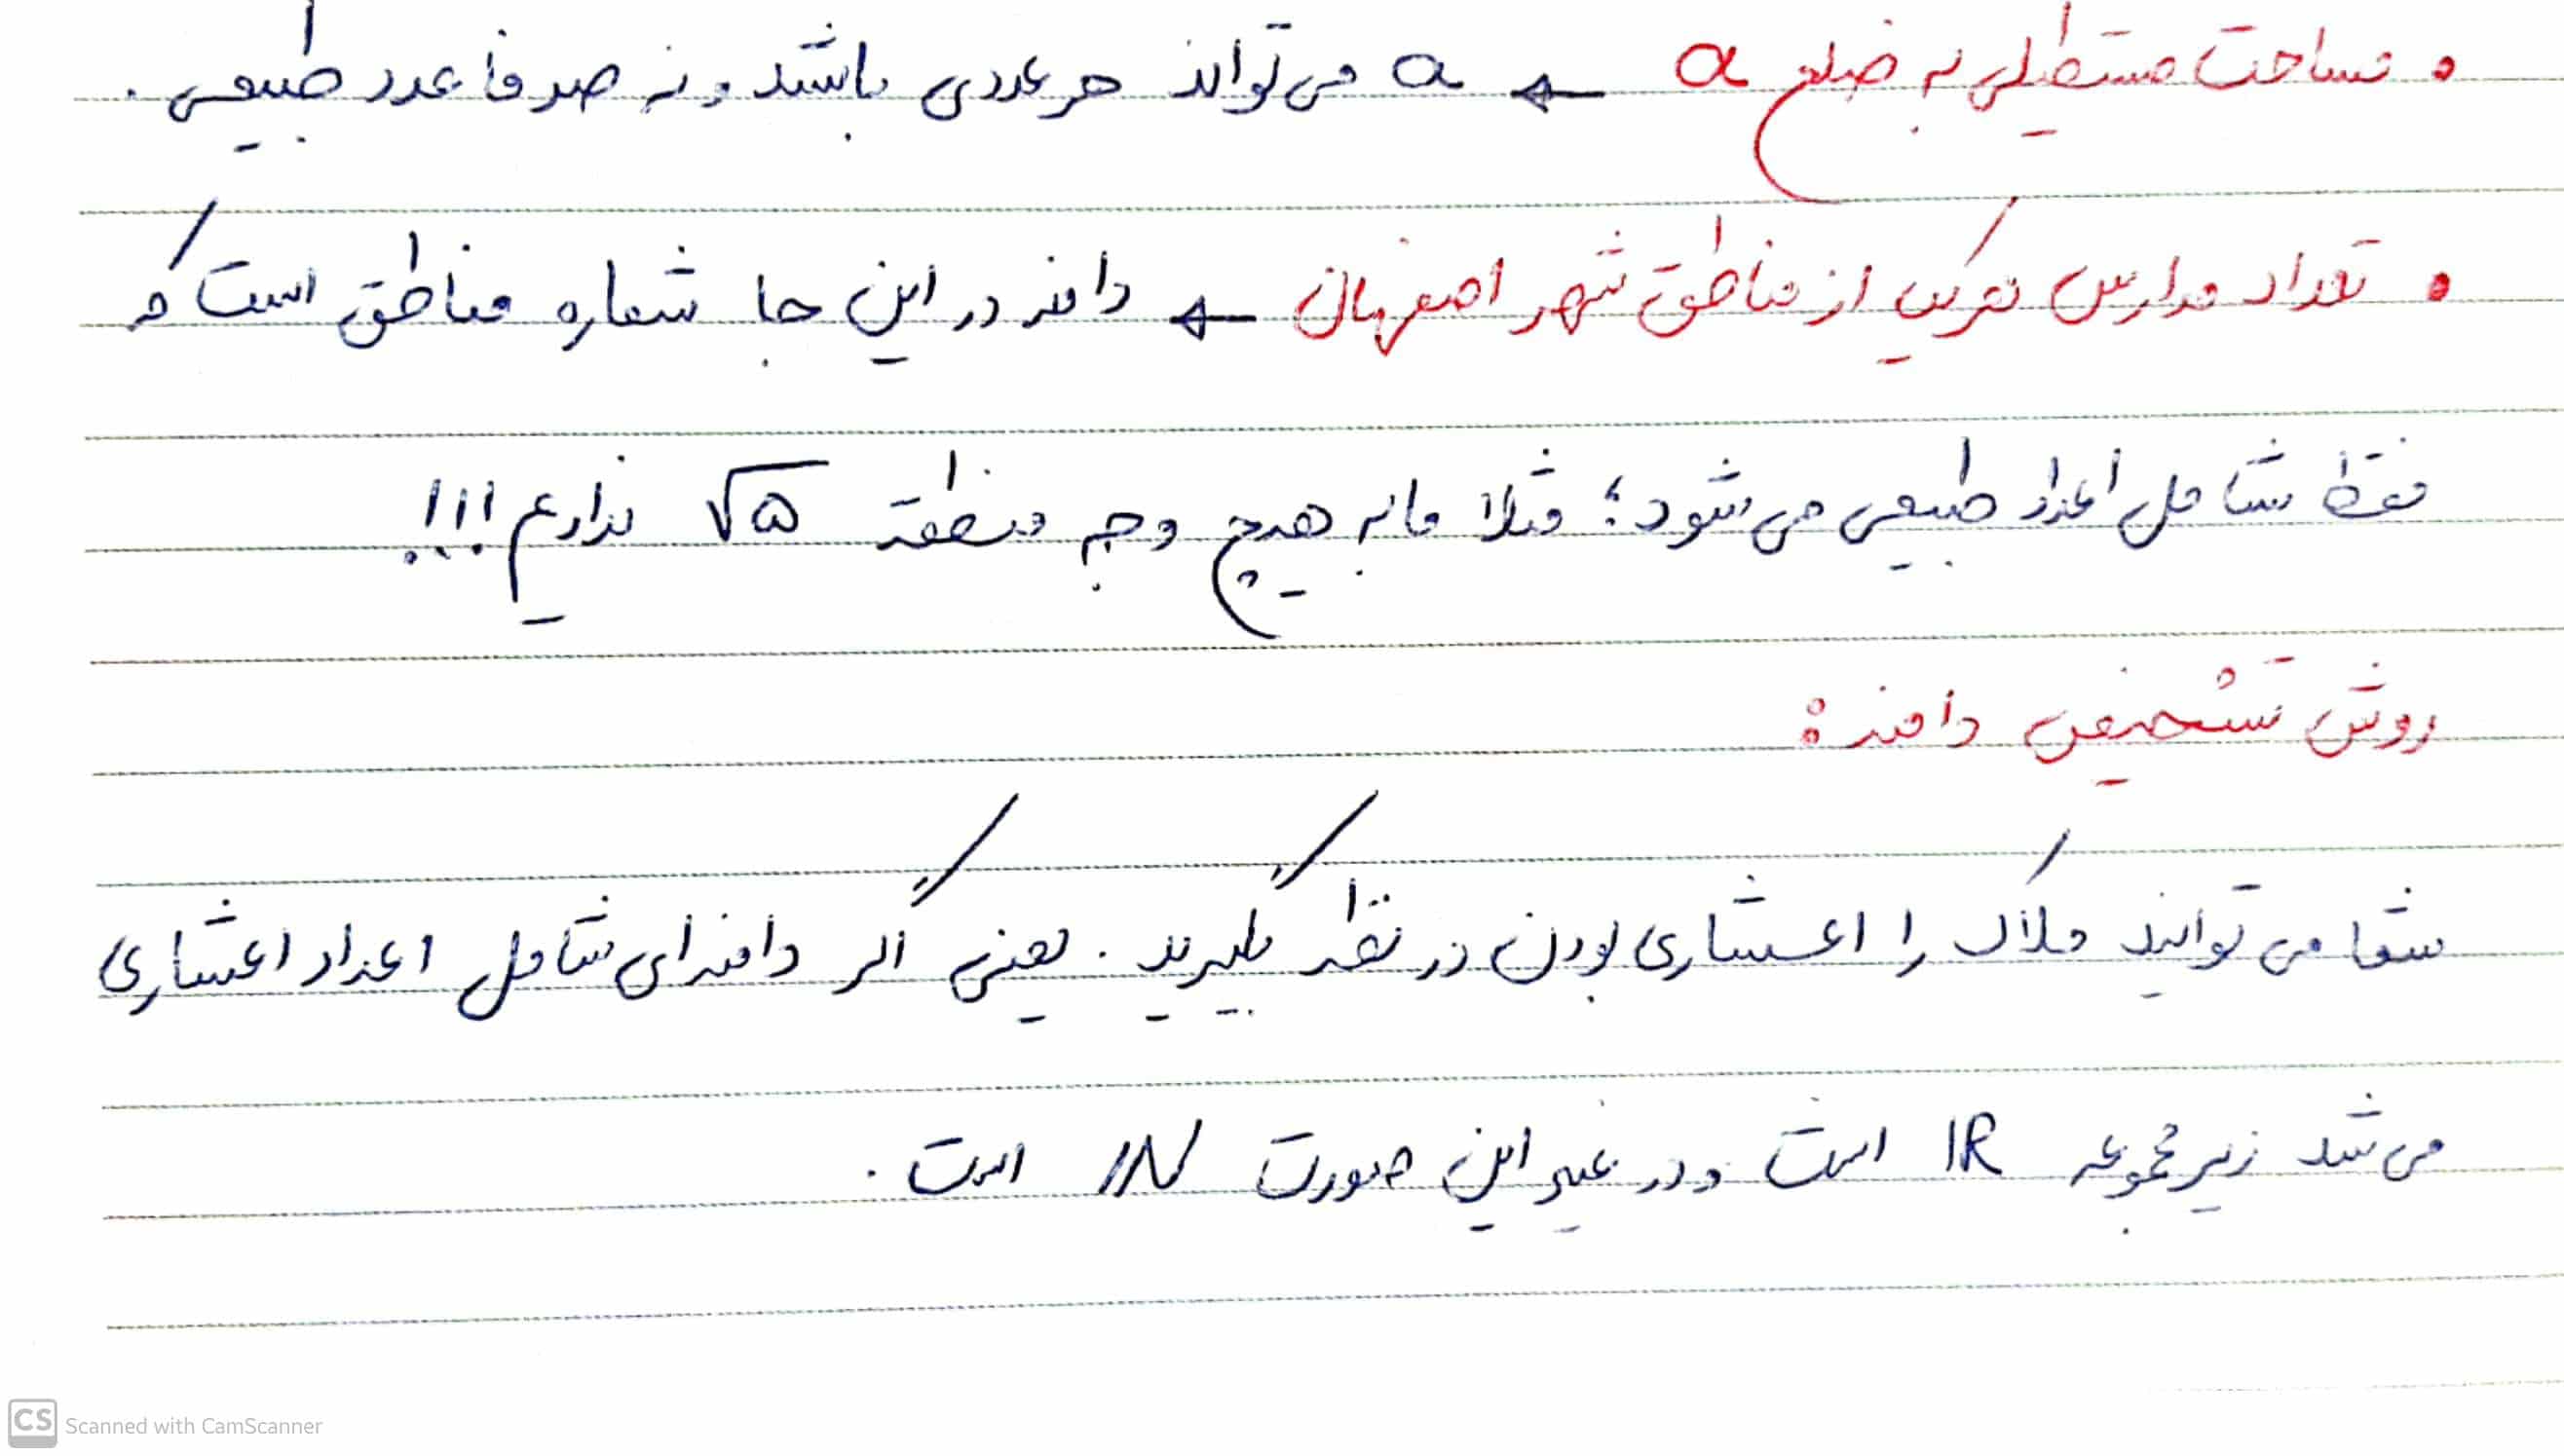 • مساحت مستطیلی به ضلع a ← a می‌تواند هر عددی باشد و نه صرفا عدد طبیعی.
• تعداد مدارس هریک از مناطق شهر اصفهان ← دامنه در این جا شماره مناطق است که
فقط شامل اعداد طبیعی می‌شود؛ مثلا ما به هیچ وجه منطقه √۵ نداریم!!!
روش تشخیص دامنه:
شما می‌توانید ملاک را اعشاری بودن در نظر بگیرید. یعنی اگر دامنه‌ای شامل اعداد اعشاری
می‌شد زیرمجموعه IR است و در غیر این صورت IN است.
CS Scanned with CamScanner